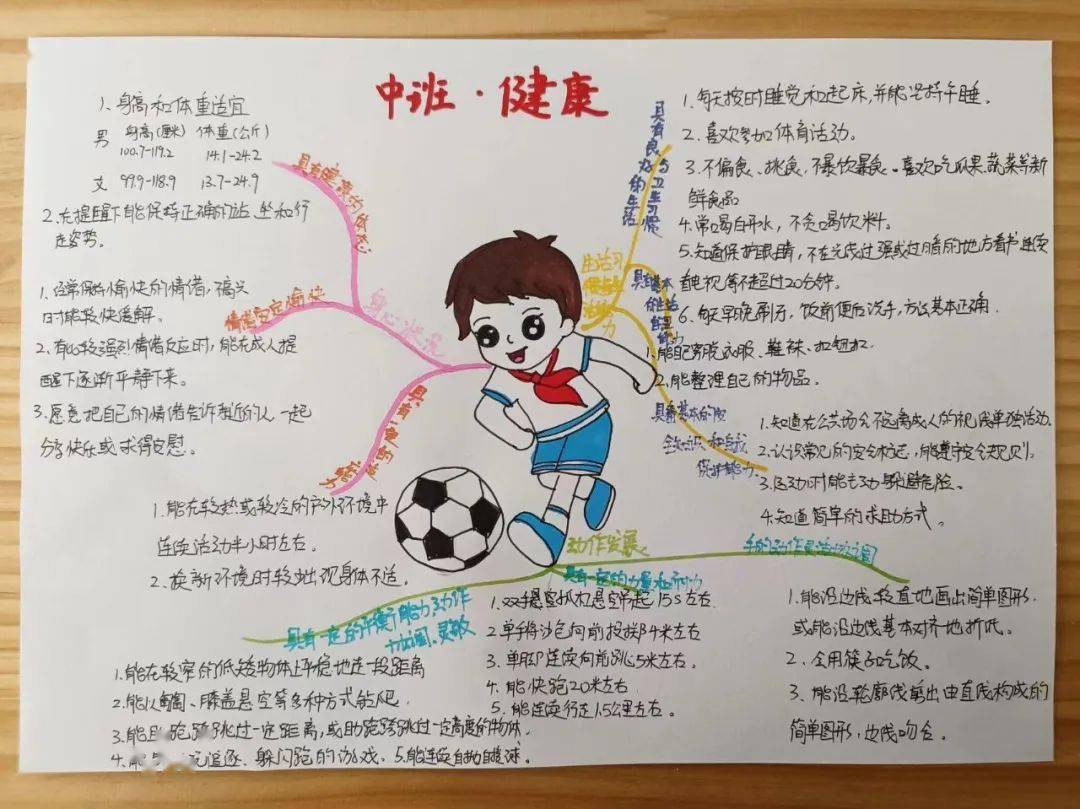 中班·健康
1、身高和体重适宜
男 身高(厘米) 体重(公斤)
100.7-119.2 14.1-24.2
女 99.9-118.9 13.7-24.9
2、在提醒下能保持正确的站、坐和行
走姿势。
具有健康的体态
1、经常保持愉快的情绪,不高兴
时能较快缓解。
2、有比较强烈情绪反应时,能在成人提
醒下逐渐平静下来。
3、愿意把自己的情绪告诉亲近的人一起
分享快乐或求得安慰。
情绪安定愉快
身心状况
具有一定的适应
能力
1、能在较热或较冷的户外环境中
连续活动半小时左右。
2、换新环境时较少出现身体不适。
具有良好的生活
与卫生习惯
生活习
惯与生
活能力
1、每天按时睡觉和起床,并能坚持午睡。
2、喜欢参加体育活动。
3、不偏食、挑食,不暴饮暴食。喜欢吃瓜果、蔬菜等新
鲜食品
4、常喝白开水,不贪喝饮料。
5、知道保护眼睛,不在光线过强或过暗的地方看书,连续
看电视等不超过20分钟。
6、每天早晚刷牙,饭前便后洗手,方法基本正确.
具有基本
的生活
自理
能力
1、能自己穿脱衣服、鞋袜、扣钮扣。
2、能整理自己的物品。
具备基本的安
全知识和自我
保护能力.
1、知道在公共场合不远离成人的视线单独活动
2、认识常见的安全标志,能遵守安全规则。
3、运动时能主动躲避危险。
4、知道简单的求助方式。
动作发展
手的动作灵活协调
具有一定的力量和耐力
具有一定的平衡能力,动作
协调、灵敏
1、能在较窄的低矮物体上平稳地走一段距离
2、能以匍匐、膝盖悬空等多种方式钻爬
3、能助跑跨跳过一定距离,或助跑跨跳过一定高度的物体
4、能与 玩追逐、躲闪跑的游戏。5、能连续自抛自接球。
1、双手悬空抓杠悬空吊起15s左右
2、单手将沙包向前投掷4米左右
3、单脚连续向前跳5米左右。
4、能快跑20米左右
5、能连续行走1.5公里左右。
1、能沿边线较直地画出简单图形,
或能沿边线基本对齐地折纸。
2、会用筷子吃饭。
3、能沿轮廓线剪出由直线构成的
简单图形,边线吻合。